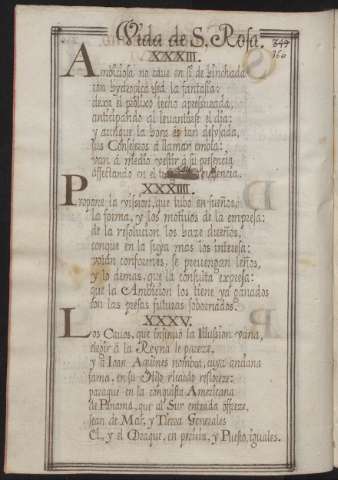 Vida de S. Rosa.
349
360
XXXIII.
Ambiciosa no cave en sí de hinchada
con hydropica sed la fantasia:
dexa el prolixo lecho apresurada,
anticipando al levantarse el dia:
y aunque la hora es tan desusada,
sus Consejos à llamar embia:
van à medio vestir à su presencia
affectando en el
XXXIIII.
Propone la vision, que tubo en sueños,
la forma, y los motivos de la empresa:
de la resolucion los haze dueños,
conque en la suya mas los interesa:
votan conformes, se prevengan leños,
y lo demas, que la consulta expresa:
que la Ambicion los tiene ya ganados
con las presas futuras sobornados.
XXXV.
Los Cavos, que insinuò la Illusion vana,
elegir à la Reyna le pareze,
y à Ioan Aquines nombra, cuya anciana
fama, en su Hijo Ricardo refloreze:
paraque en la conquista Americana
de Panamà, que al Sur entrada ofreze,
sean de Mar, y Tierra Generales
El, y el Draque, en pericia, y Puesto, iguales.